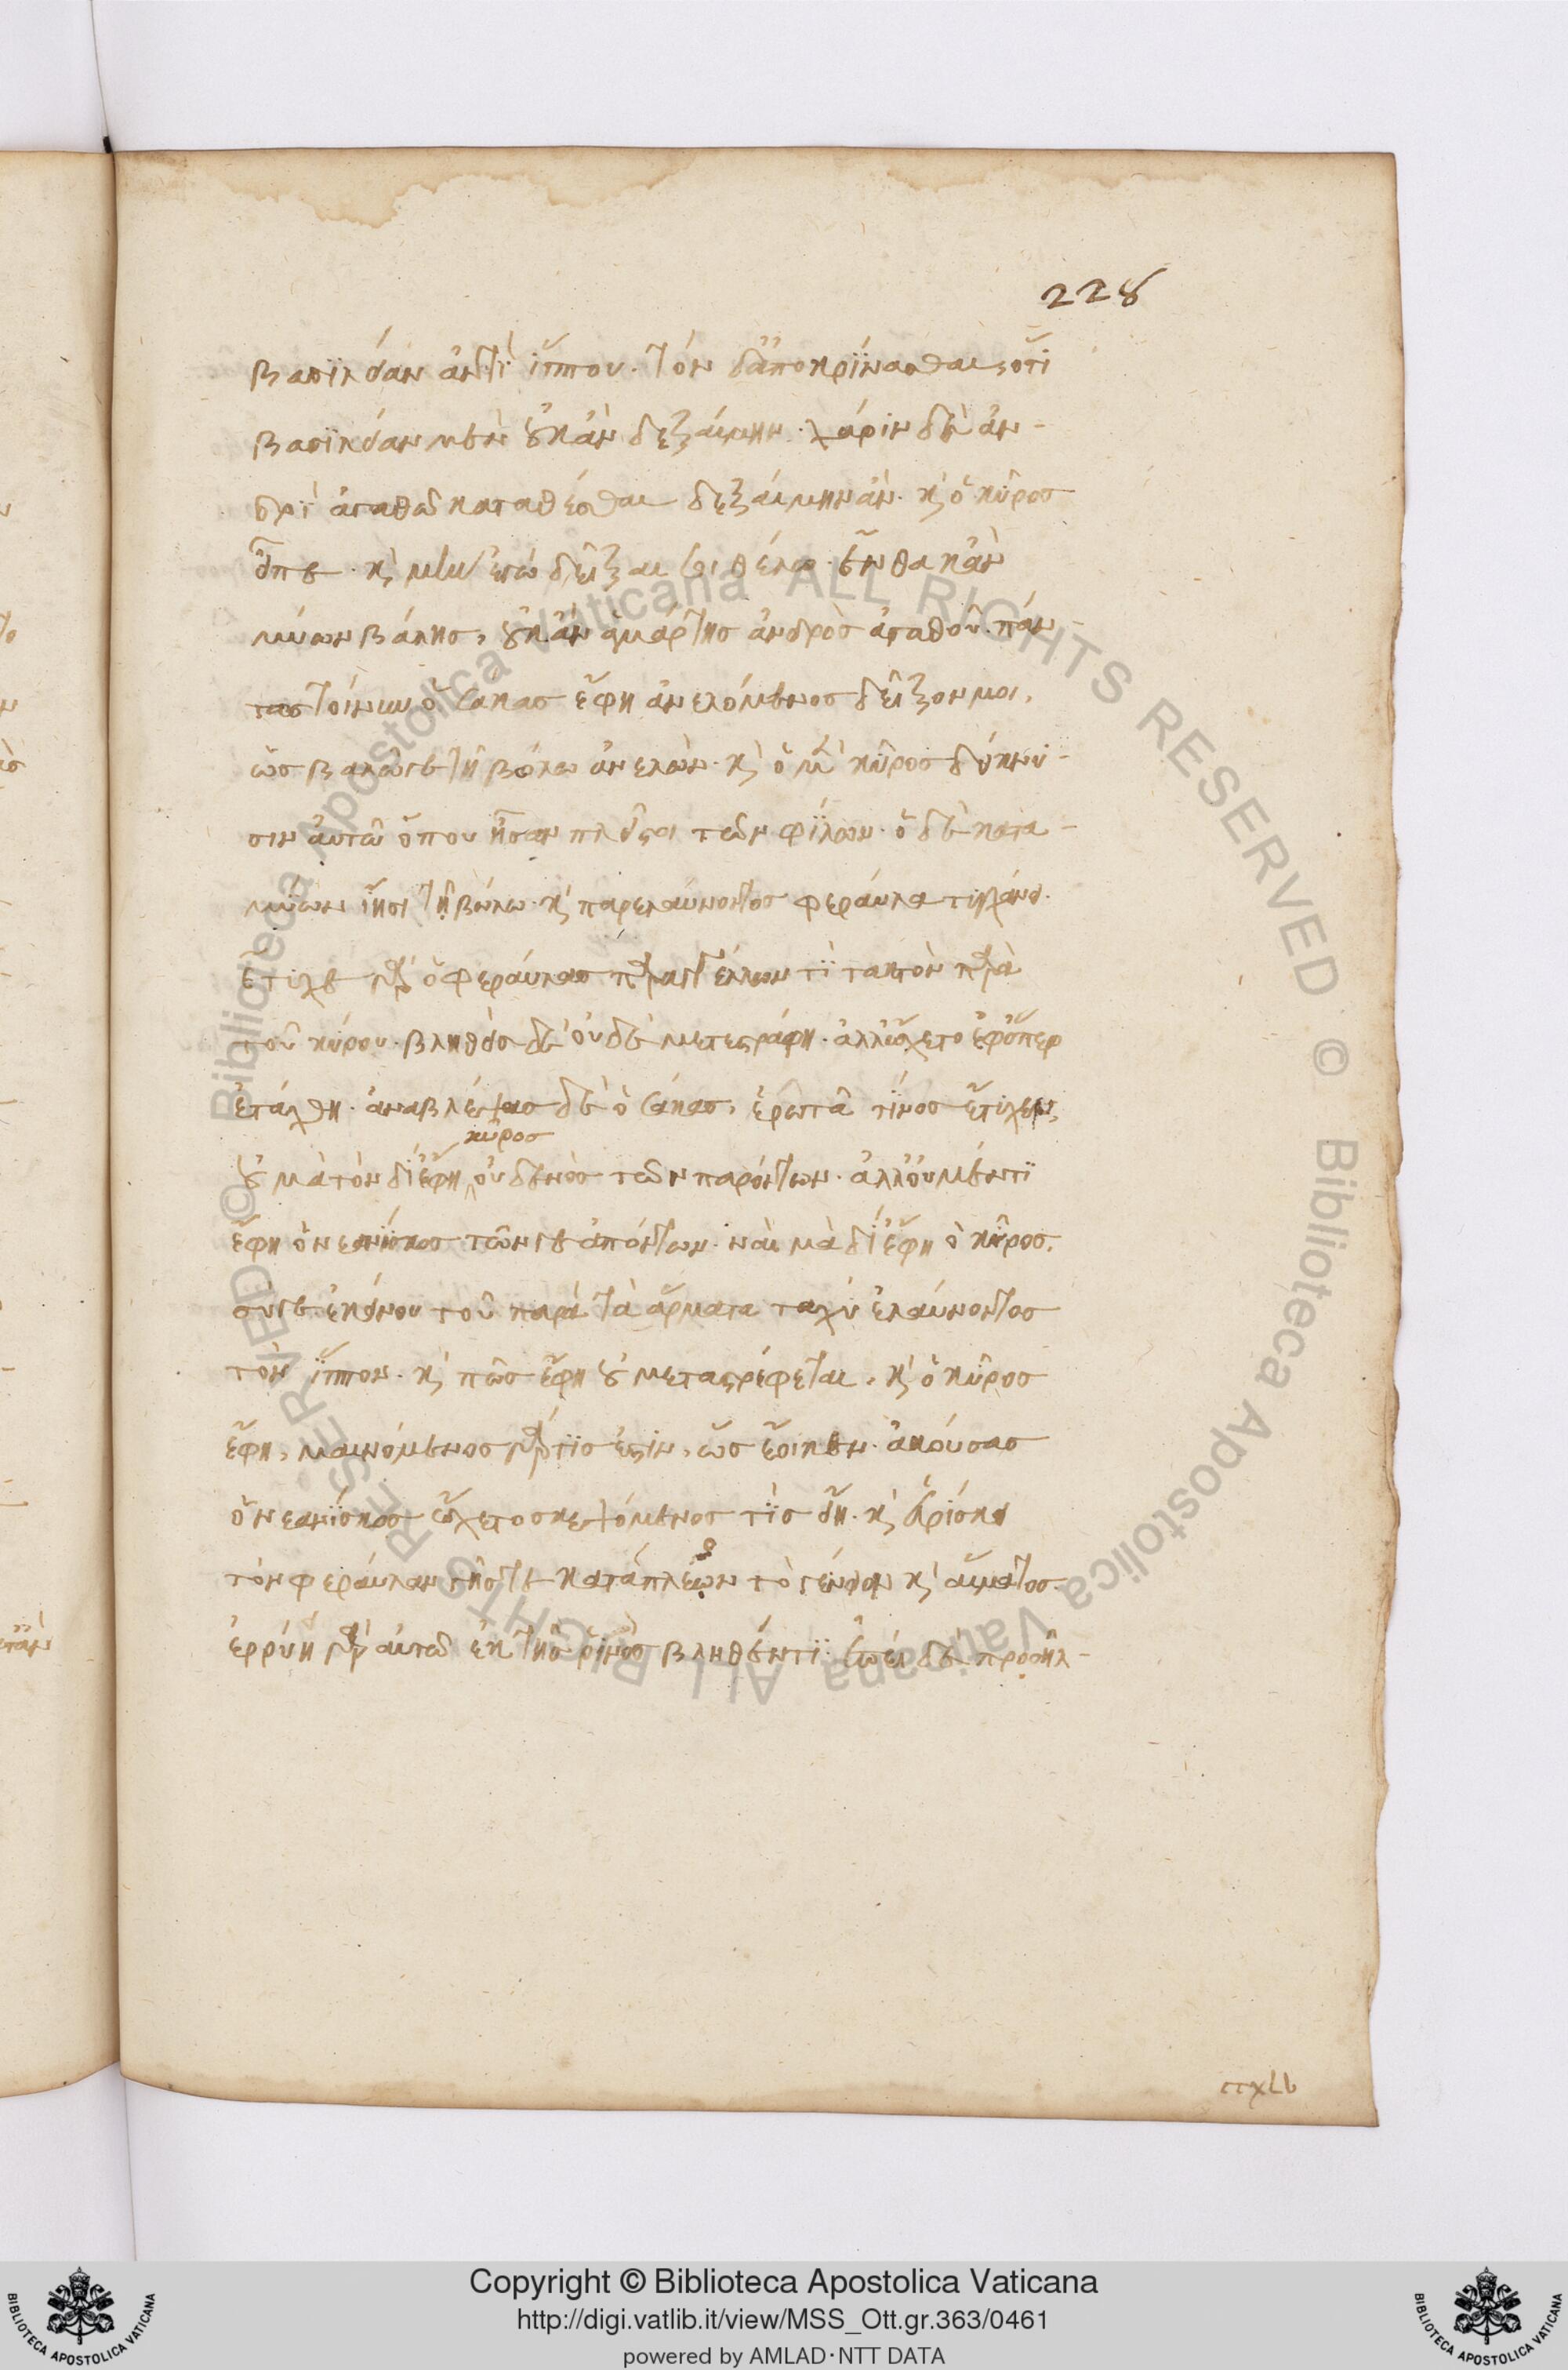 228
βασιλείαν ἀντὶ ἵππου. τὸν δ' ἀποκρίνασθαι, ὅτι
βασιλείαν μὲν οὐκ ἂν δεξαίμην. χάριν δὲ ἀν-
δρὶ ἀγαθῶ καταθέσθαι δεξαίμην ἄν. κ' ὁ κῦρος
εἶπε. κ' μὴν ἐγὼ δεῖξαι σοι θέλω. ἔνθα κἂν
μύων βάλης, οὐκ ἂν ἁμάρτης ἀνδρὸς ἀγαθοῦ. πάν-
τως τοίνυν ὁ σάκας ἔφη ἀνελόμενος δεῖξον μοι,
ὡς βαλῶ γε τῆ βώλω ἀνελών. κ' ὁ μὲν κῦρος δείκνυ-
σιν αὐτῶ ὅπου ἦσαν πλεῖστοι τῶν φίλων. ὁ δὲ κατα-
μύων ἵησι τῆ βώλω. κ' παρελαύνοντος φεραύλα τυγχάνει.
ἔτυχε γὰρ ὁ φεραύλας παραγγέλλων τὶ τακτὸν παρὰ
τοῦ κύρου. βληθεὶς δὲ οὐδὲ μετεστράφη. ἀλλ' ὤχετο ἐφ' ὅπερ
ἐτάχθη. ἀναβλέψας δὲ ὁ σάκας, ἐρωτᾶ τίνος ἔτυχεν,
οὐ μὰ τὸν δί' ἔφη κῦρος οὐδενὸς τῶν παρόντων. ἀλλ' οὐ μέντι
ἔφη ὁ νεανίσκος τῶν γε ἀπόντων. ναὶ μὰ δί' ἔφη ὁ κῦρος.
σύ γε ἐκείνου τοῦ παρὰ τὰ ἅρματα ταχὺ ἐλαύνοντος
τὸν ἵππον. κ' πῶς ἔφη οὐ μεταστρέφεται, κ' ὁ κῦρος
ἔφη, μαινόμενος γὰρ τίς ἐστιν, ὡς ἔοικεν. ἀκούσας
ὁ νεανίσκος ὤχετο σκεψόμενος τίς εἴη. κ' εὑρίσκει
τὸν φεραύλαν γῆς τε κατάπλεων τὸ γένειον κ' αἵματος.
ἐρρύη γὰρ αὐτῶ ἐκ τῆς ῥινὸς βληθέντι. ἐπεὶ δὲ προσῆλ-